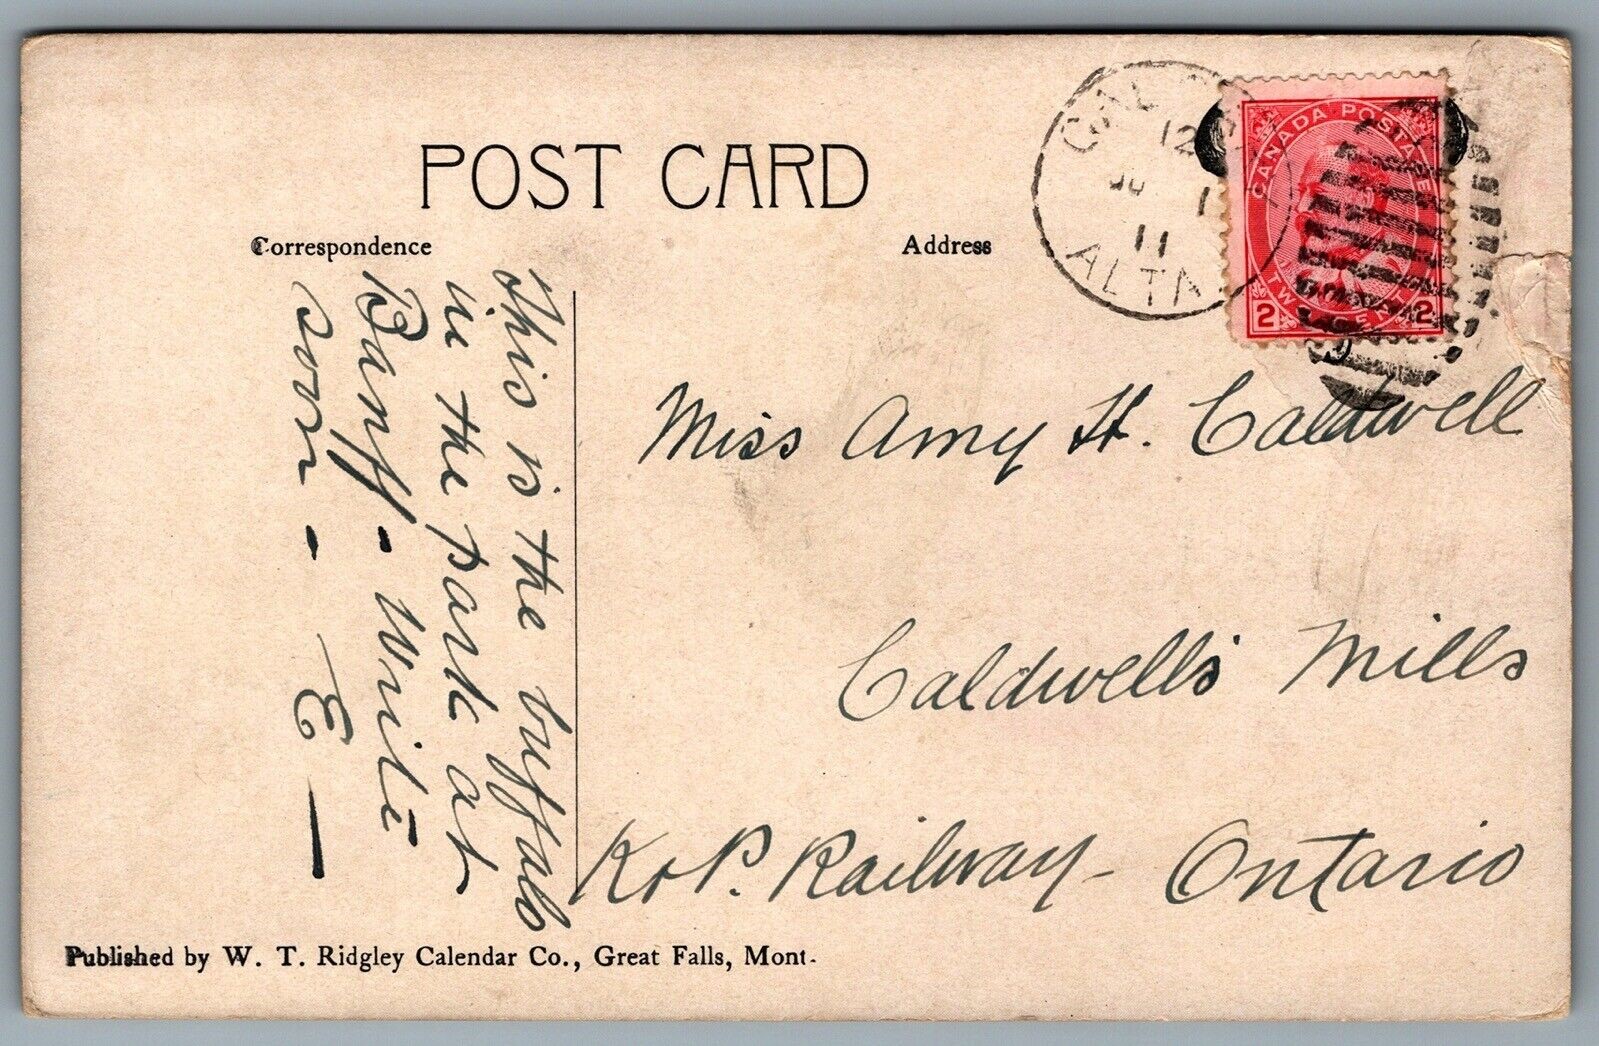 POST CARD
Correspondence
Address
This is the buffalo
in the park at
Banff - Write
soon -
E -
12
1
11
ALTA
CANADA POSTAGE
2 2
Miss Amy H. Caldwell
Caldwell's Mills
K & P. Railway - Ontario
Published by W. T. Ridgley Calendar Co., Great Falls, Mont.